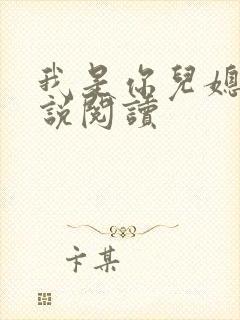 我是你兒媳
說閱讀
卞某